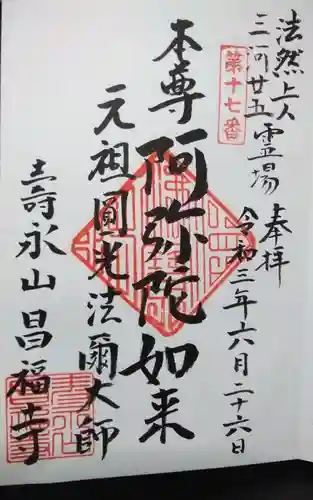 法然上人
三河廿五霊場
第十七番
奉拝
令和三年六月二十六日
本尊阿弥陀如来
元祖圓光法爾大師
壽永山昌福寺